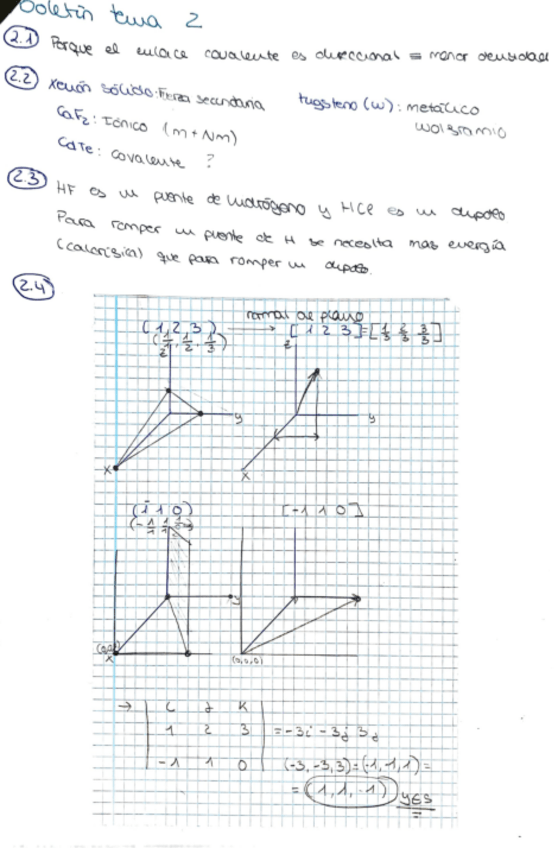 Boletín tema 2
2.1 Porque el enlace covalente es direccional = menor densidad
2.2 Xenón sólido: Fuerza secundaria tugsteno (W): metálico
CaF2: Iónico (m + Nm) wolframio
CdTe: covalente ?
2.3 HF es un puente de hidrógeno y HCl es un dipolo
Para romper un puente de H se necesita mas energía
(calorífica) que para romper un dipolo.
2.4
normal al plano
(1, 2, 3) → [1 2 3] = [1/3 2/3 3/3]
(1/1, 1/2, 1/3)
z z
y y
x x
(1̄ 1 0) [-1 1 0]
(-1/1 1/1 1/0)
y
(0,0,0)
x (0,0,0)
→ | i j k |
| 1 2 3 | = -3i - 3j 3
| -1 1 0 | (-3, -3, 3) = (-1, -1, 1) =
= (1, 1, -1) YES